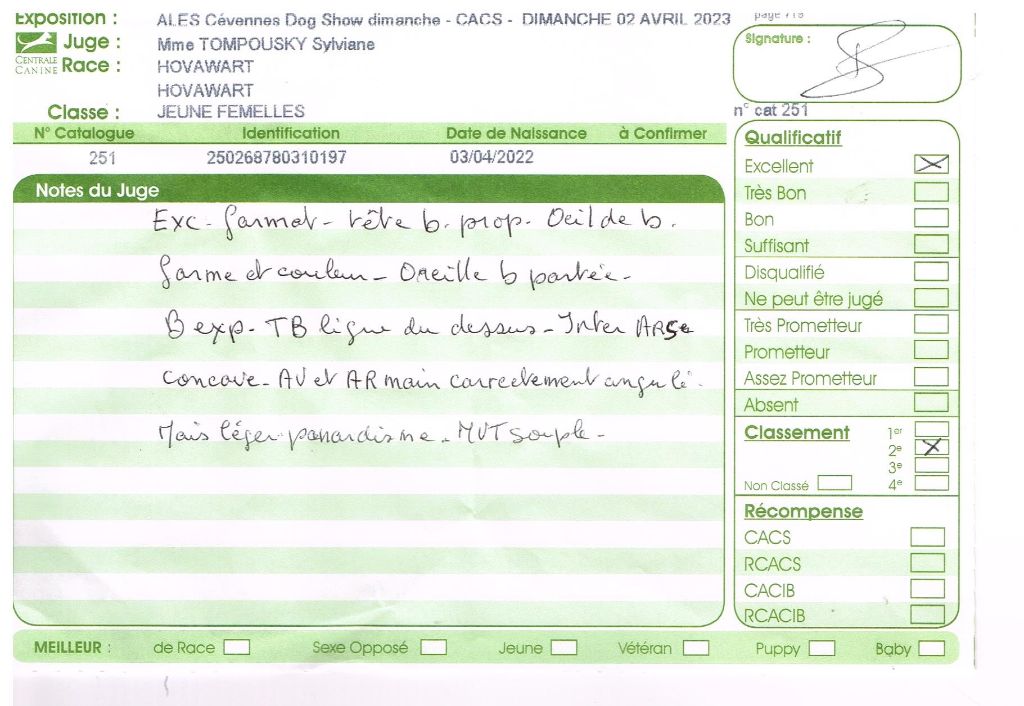 Exposition : ALES Cévennes Dog Show dimanche - CACS - DIMANCHE 02 AVRIL 2023
CENTRALE CANINE
Juge : Mme TOMPOUSKY Sylviane
Race : HOVAWART
HOVAWART
Classe : JEUNE FEMELLES
Signature :
n° cat 251
N° Catalogue Identification Date de Naissance à Confirmer
251 250268780310197 03/04/2022
Notes du Juge
Exc - format - tête b. prop. Oeil de b.
forme et couleur - Oreille b portée -
B exp - TB ligne du dessus - Inter
concave - AV et AR main correctement angulé.
Mais léger panardisme - MVT souple -
Qualificatif
Excellent
Très Bon
Bon
Suffisant
Disqualifié
Ne peut être jugé
Très Prometteur
Prometteur
Assez Prometteur
Absent
Classement
1er
2e
3e
Non Classé 4e
Récompense
CACS
RCACS
CACIB
RCACIB
MEILLEUR : de Race Sexe Opposé Jeune Vétéran Puppy Baby